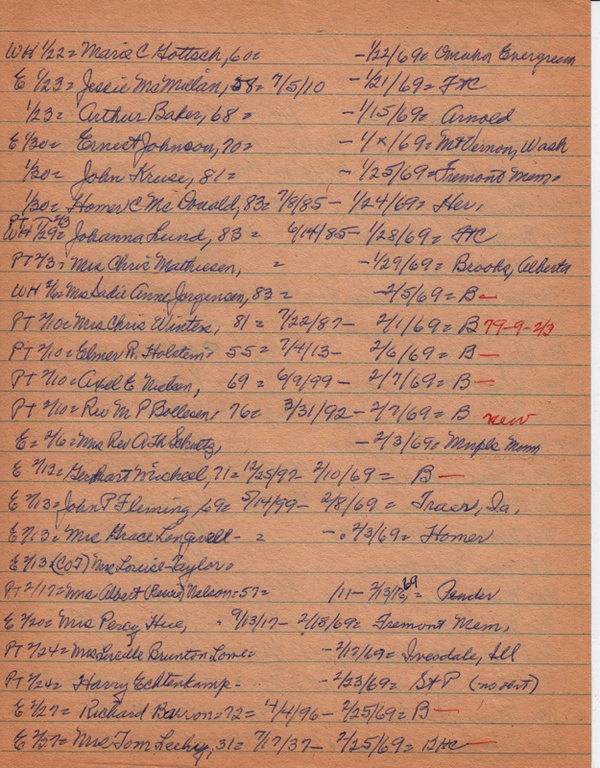 WH 1/22= Marie C Gottsch, 60= -1/22/69= Omaha Evergreen
E 1/23= Jessie McMillan, 58= 7/5/10 -1/21/69= FHC
1/23= Arthur Baker, 68= -1/15/69= Arnold
E 1/30= Ernest Johnson, 70= - 1/x/69= Mt Vernon, Wash
1/30= John Kruse, 81= - 1/25/69= Fremont Mem=
1/30= Homer C McDonald, 83= 7/8/85- 1/24/69= Her,
PT 2/3
WH 1/29= Johanna Lund, 83= 6/14/85- 1/28/69= FHC
PT 2/3= Mrs Chris Mathiesen, = -1/29/69= Brooks, Alberta
WH 2/6= Mrs Sadie Anne Jorgensen, 83= -2/5/69= B-
PT 2/10= Mrs Chris Winters, 81= 7/22/87- 2/1/69= B 79-9-2/3
PT 2/10= Elmer R. Holstein= 55= 7/4/13- 2/6/69= B-
PT 2/10= Axel E Nielsen, 69= 6/9/99- 2/7/69= B-
PT 2/10= Rev M P Bollesen, 76= 3/31/92- 2/7/69= B new
E= 2/6= Mrs Rev A Th Schultz, -2/3/69= Mnpls Minn
E 2/13= Gerhart Micheel, 71= 12/25/97- 2/10/69= B-
E 2/13= John P Fleming, 69= 5/14/99- 2/8/69= Traer, Ia,
E 2/13= Mrs Grace Longwell- = -= 2/3/69= Homer
E 2/13 (COT) Mrs Louise Taylor=
PT 2/17= Mrs Albert Nelson= 57= /11- 2/13/69= Pender
E 2/20= Mrs Percy Hue, 9/13/17- 2/15/69= Fremont Mem,
PT 2/24= Mrs Lucille Brunton Lowe= -2/17/69= Ivesdale, Ill
PT 2/24= Harry Echtenkamp- -2/23/69= St P
E 2/27= Richard Barron= 72= 4/4/96- 2/25/69= B-
E 2/27= Mrs Tom Leehy, 31= 7/17/37- 2/25/69= FHC-